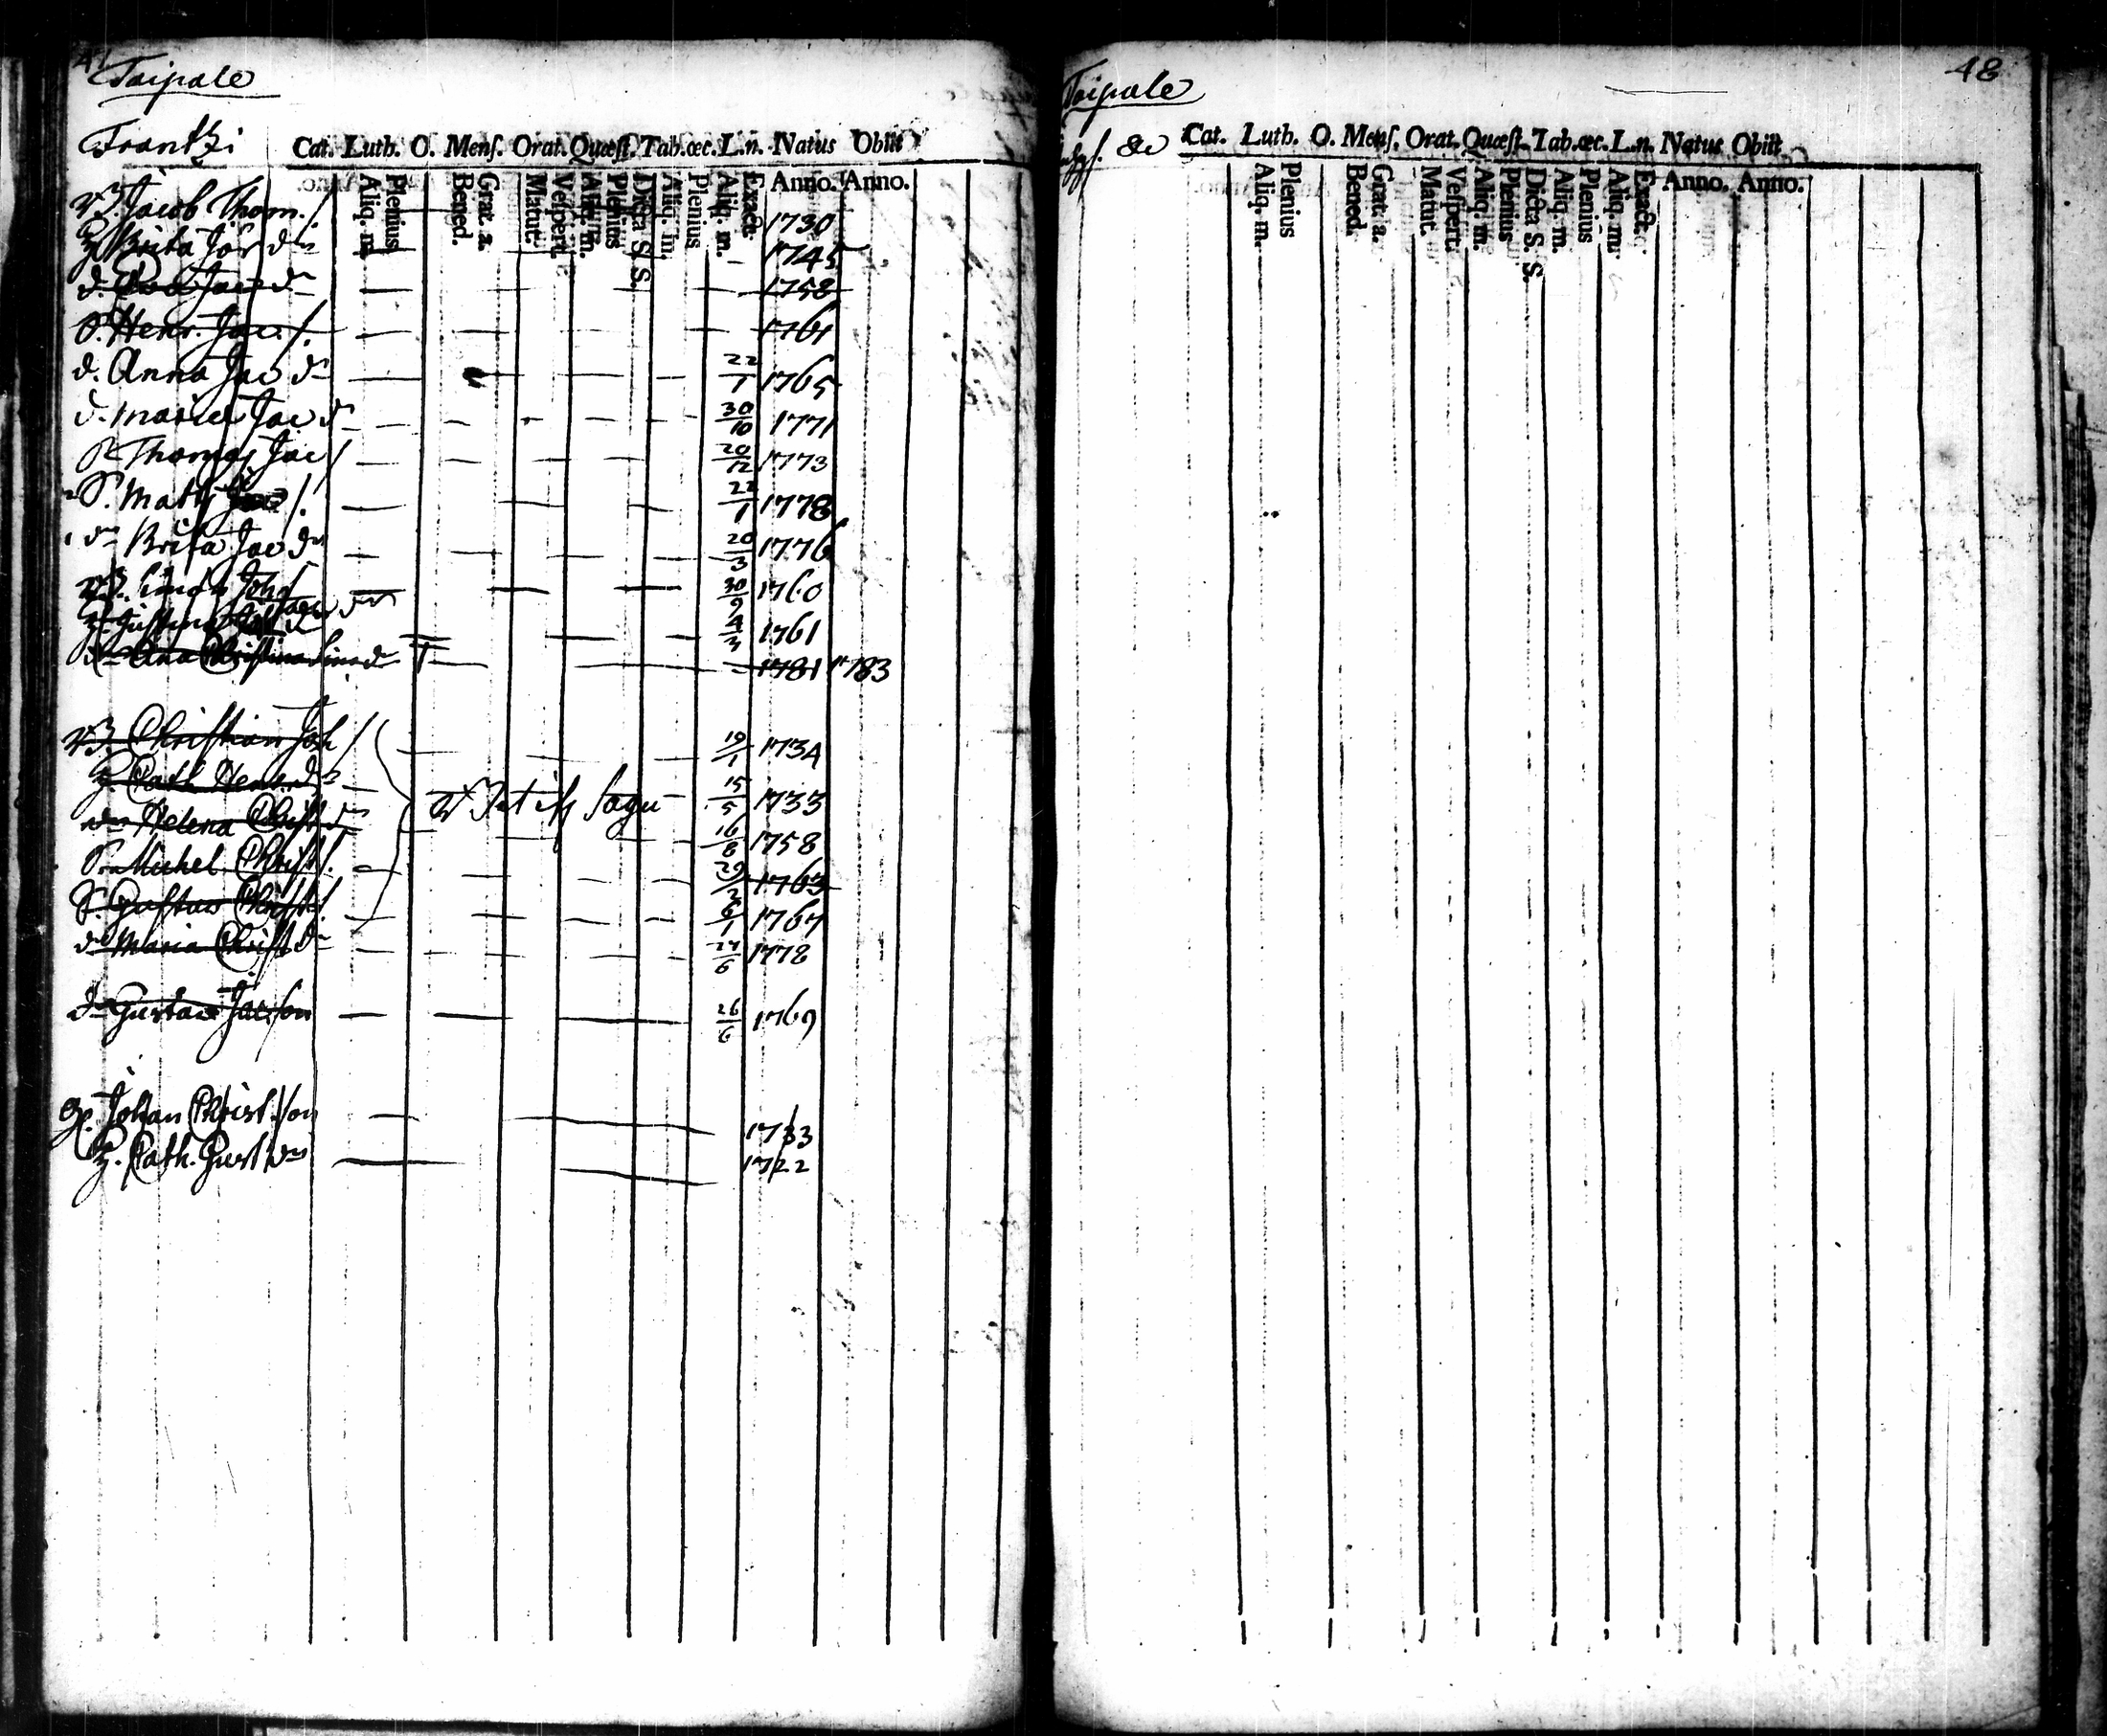 Taipale
Frantzi
Cat. Luth. O. Mens. Orat. Quæst. Tab. œc. L. n. Natus Obiit
Aliq. m. Plenius Bened. Grat. a. Matut. Vespert. Aliq. m. Plenius Dicta S. S. Aliq. m. Plenius Aliq. m. Exacte. Anno. Anno.
Jacob Thom. 1730
Brita Joh dr 1745
d. Jac dr 1758
S. Henr. Jac. 1761
d. Anna Jac dr 22/1 1765
d. Maria Jac dr 30/10 1771
Thomas Jac 20/12 1773
S. Matts 22/1 1778
dr Brita Jac dr 20/3 1776
Simon Joh 30/9 1760
Justina dr 4/3 1761
dr Ana Christina Sim dr 1781 1783
Christian Joh 19/1 1734
H. Cath. Henr. dr 15/5 1733
dr Helena Christ dr 16/8 1758
Michel Christ. 29/2 1763
S. Gustav Christ. 6/1 1767
dr Maria Christ dr 24/6 1778
Gustav Jac. son 26/6 1769
Johan Christ. son 1733
H. Cath. Gust dr 1722
Taipale
48
&c
Cat. Luth. O. Mens. Orat. Quæst. Tab. œc. L. n. Natus Obiit
Aliq. m. Plenius Bened. Grat. a. Matut. Vespert. Aliq. m. Plenius Dicta S. S. Aliq. m. Plenius Aliq. m. Exacte. Anno. Anno.